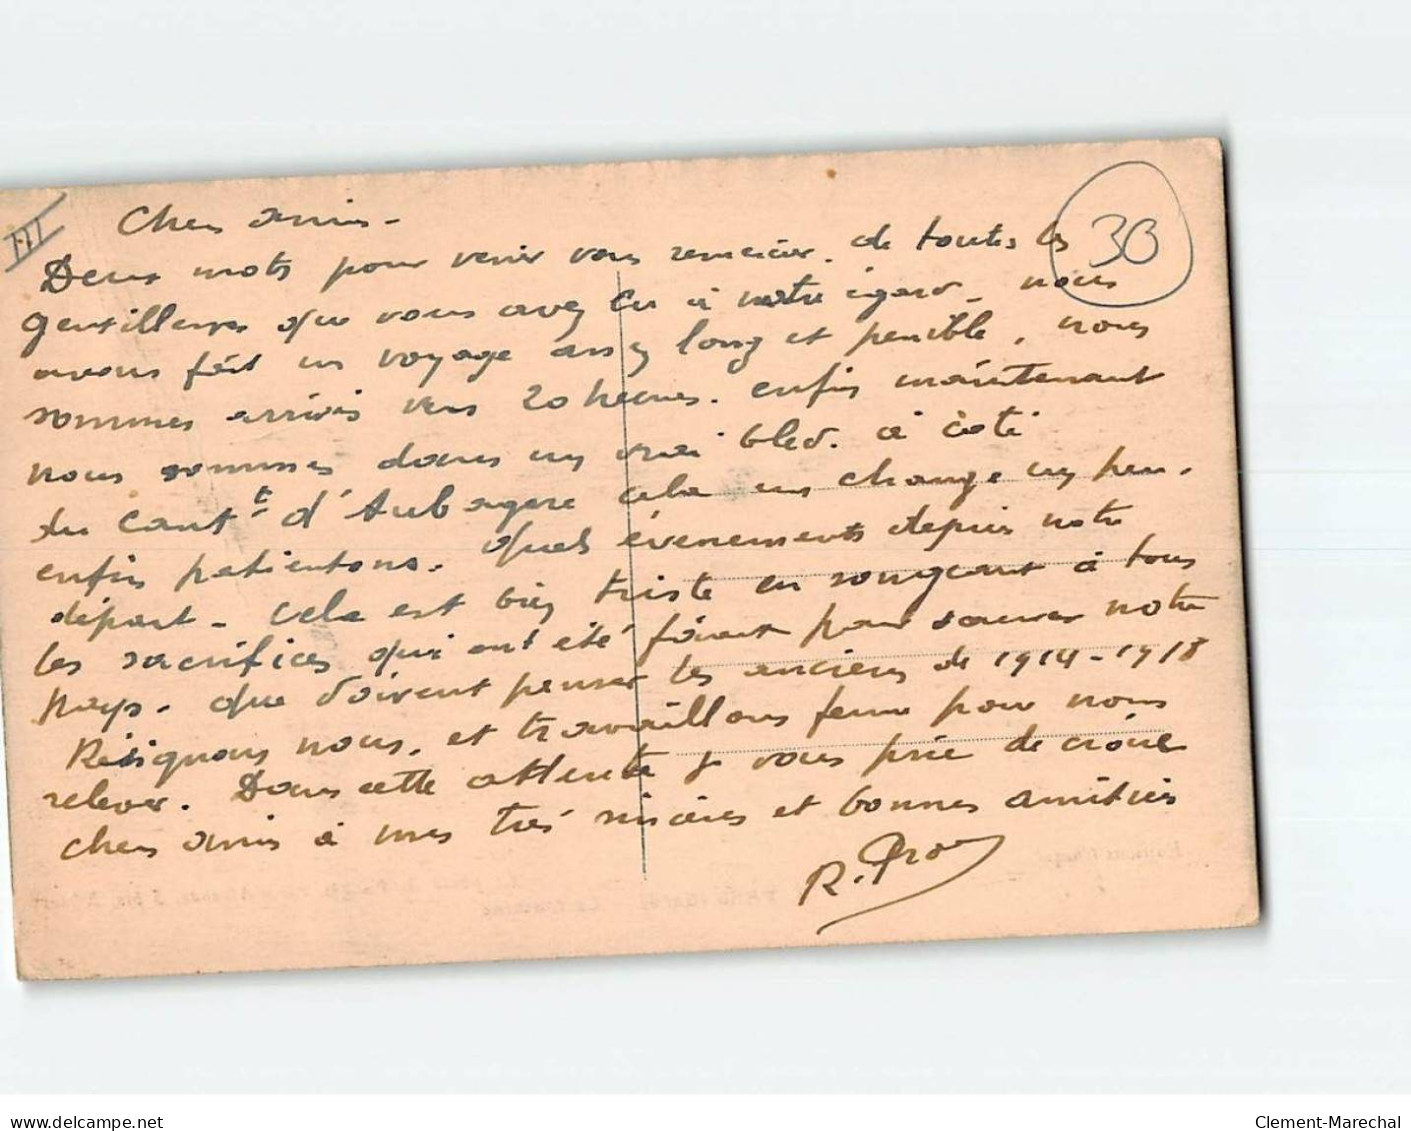 III
30
Chers amis -
Deux mots pour venir vous remercier. de toutes les
gentillesses que vous avez eu à notre égard - nous
avons fait un voyage assez long et penible, nous
sommes arrivés vers 20 heures. enfin maintenant
nous sommes dans un vrai bled. à coté
du Cant.t d'Aubagne cela en change un peu.
enfin patientons. Quels évenements depuis notre
départ - cela est bien triste en songeant à tous
les sacrifices qui ont été faient pour sauver notre
pays. que doivent penser les anciens de 1914-1918
Résignons nous. et travaillons ferme pour nous
relever. Dans cette attente je vous prie de croire
chers amis à mes très sincères et bonnes amitiés
R.
www.delcampe.net
Clement-Marechal